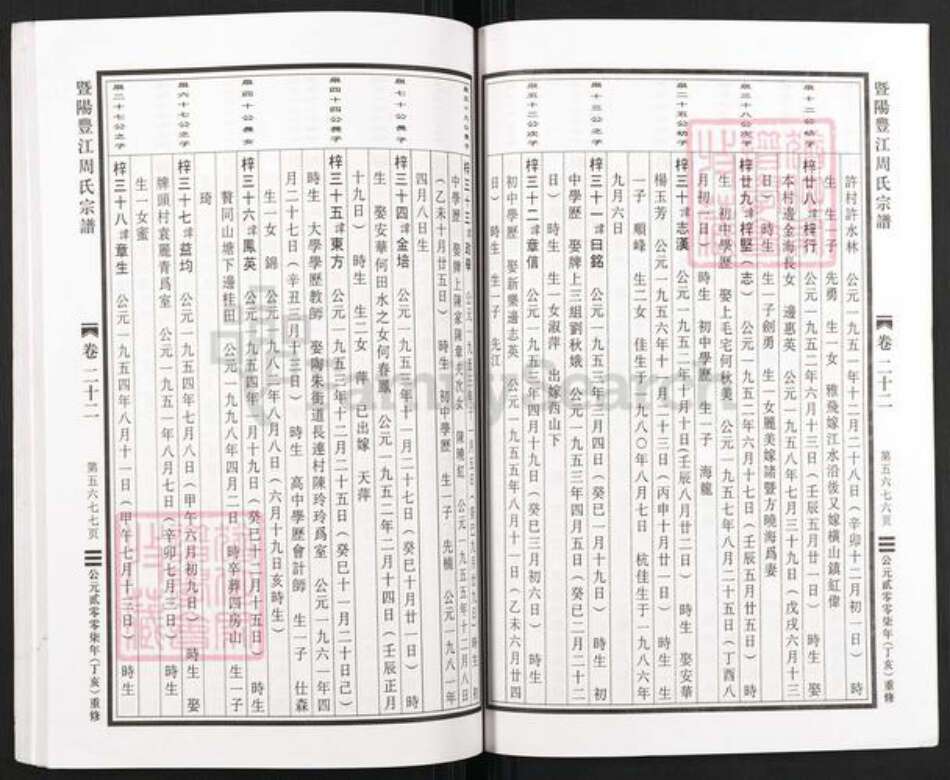 暨陽豐江周氏宗譜
卷二十二
第五六七六頁
公元貳零零柒年(丁亥)重修
許村許水林 公元一九五一年十二月二十八日(辛卯十二月初一日) 時
生 生一子 先勇 生一女 雅飛嫁江水沿後又嫁橫山鎮虹偉
梓廿八諱梓行 公元一九五二年六月十三日(壬辰五月廿一日) 時生 娶
本村邊金海長女 邊惠英 公元一九五八年七月三十九日(戊戌六月十三
日) 時生 生一子劍勇 生一女麗美嫁諸暨方曉海爲妻
梓廿九諱梓堅(志) 公元一九五二年六月十七日(壬辰五月廿五日) 時
生 初中學歷 娶上毛宅何秋美 公元一九五七年八月二十五日(丁酉八
月初一日) 時生 初中學歷 生一子 海龍
梓三十諱志漢 公元一九五二年十月十日(壬辰八月廿二日) 時生 娶安華
楊玉芳 公元一九五六年十一月二十三日(丙申十月廿一日) 時生 生
一子 順峰 生二女 佳生于一九八〇年八月七日 杭佳生于一九八六年
九月六日
梓三十一諱日銘 公元一九五三年三月四日(癸巳一月十九日) 時生 初
中學歷 娶牌上三組劉秋娥 公元一九五三年四月五日(癸巳二月二十二
日) 時生 生二女淑萍 出嫁西山下
梓三十二諱章信 公元一九五三年四月十九日(癸巳三月初六日) 時生
初中學歷 娶新樂邊志英 公元一九五五年八月十一日(乙未六月廿四
日) 時生 生一子 先江
暨陽豐江周氏宗譜
卷二十二
第五六七七頁
公元貳零零柒年(丁亥)重修
中學歷 娶牌上陳家陳章夫次女 陳曉紅 公元一九五五年十二月八日
(乙未十月廿五日) 時生 初中學歷 生一子 先楠 公元一九八一年
四月八日生
梓三十四諱金培 公元一九五三年十一月二十七日(癸巳十月廿一日) 時
生 娶安華何田水之女何春鳳 公元一九五二年二月十四日(壬辰正月
十九日) 時生 生二女 萍 已出嫁 天萍
梓三十五諱東方 公元一九五三年十二月二十五日(癸巳十一月二十日己)
時生 大學學歷教師 娶陶朱街道長連村陳玲玲爲室 公元一九六一年四
月二十七日(辛丑三月十三日) 時生 高中學歷會計師 生一子 仕森
生一女 錦 公元一九八二年八月八日(六月十九日亥時生)
梓三十六諱鳳英 公元一九五四年一月十九日(癸巳十二月十五日) 時生
贅同山塘下邊桂田 公元一九九八年四月二日 時卒葬四房山 生一子
琦
梓三十七諱益均 公元一九五四年七月八日(甲午六月初九日) 時生 娶
牌頭村袁麗青爲室 公元一九五一年八月七日(辛卯七月三日) 時生
生一女蜜
梓三十八諱章生 公元一九五四年八月十一日(甲午七月十三日) 時生